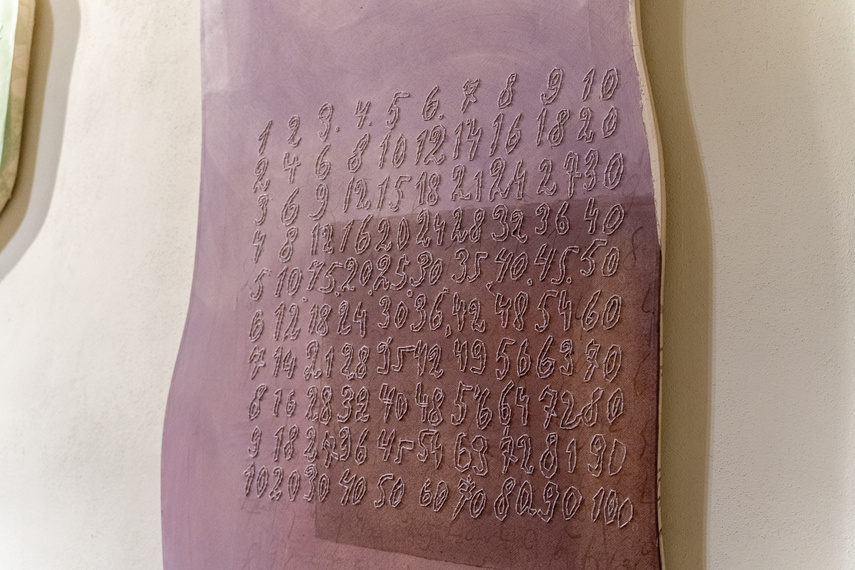 1 2 3. 4. 5 6. 7 8 9 10
2 4 6 8 10 12 14 16 18 20
3 6 9 12 15 18 21 24 27 30
4 8 12 16 20 24 28 32 36 40
5 10. 15. 20. 25. 30 35 40. 45. 50
6 12. 18 24 30 36, 42 48 54 60
7 14 21 28 35 42 49 56 63 70
8 16 28 32 40 48 56 64 72 80
9 18 27 36 45 54 63 72 81 90
10 20 30 40 50 60 70 80. 90 100